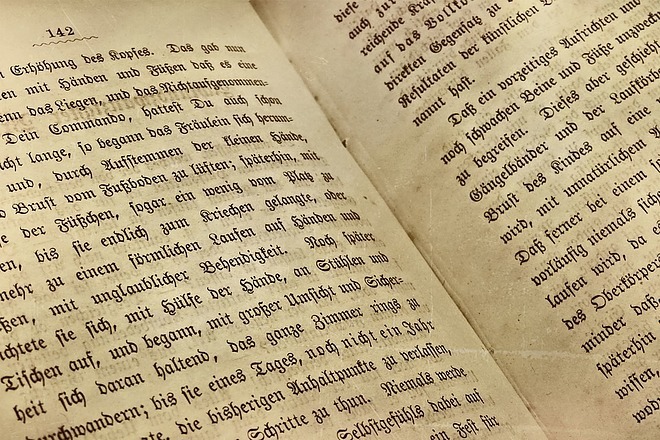 142
Erhöhung des Kopfes. Das gab nun
mit Händen und Füßen daß es eine
das Liegen, und das Nichtaufgenommen-
Dein Commando, hattest Du auch schon
lange, so begann das Fräulein sich herum-
und, durch Aufstemmen der kleinen Hände,
Brust vom Fußboden zu lüften; späterhin, mit
der Füßchen, sogar ein wenig vom Platz zu
bis sie endlich zum Kriechen gelangte, oder
zu einem förmlichen Laufen auf Händen und
mit unglaublicher Behendigkeit. Noch später
sie sich, mit Hülfe der Hände, an Stühlen und
Tischen auf, und begann, mit großer Umsicht und Sicher-
heit sich daran haltend, das ganze Zimmer rings zu
durchwandern; bis sie eines Tages, noch nicht ein Jahr
die bisherigen Anhaltpunkte zu verlassen,
Schritte zu thun. Niemals werde
Selbstgefühls dabei auf
ein Fest für
diese
auch zur
reichende
auf das
direkten Gegensatz zu
Resultaten der künstlichen
nannt hast.
Daß ein vorzeitiges Aufrichten und
noch schwachen Beine und Füße
zu begreifen. Dieses aber geschieht
Gängelbänder und der Laufkörbe
Brust des Kindes auf eine
wird, mit unnatürlichen
Daß ferner bei einem
vorläufig niemals sich
laufen wird, da
des Oberkörpers
minder daß
späterhin
wissen,